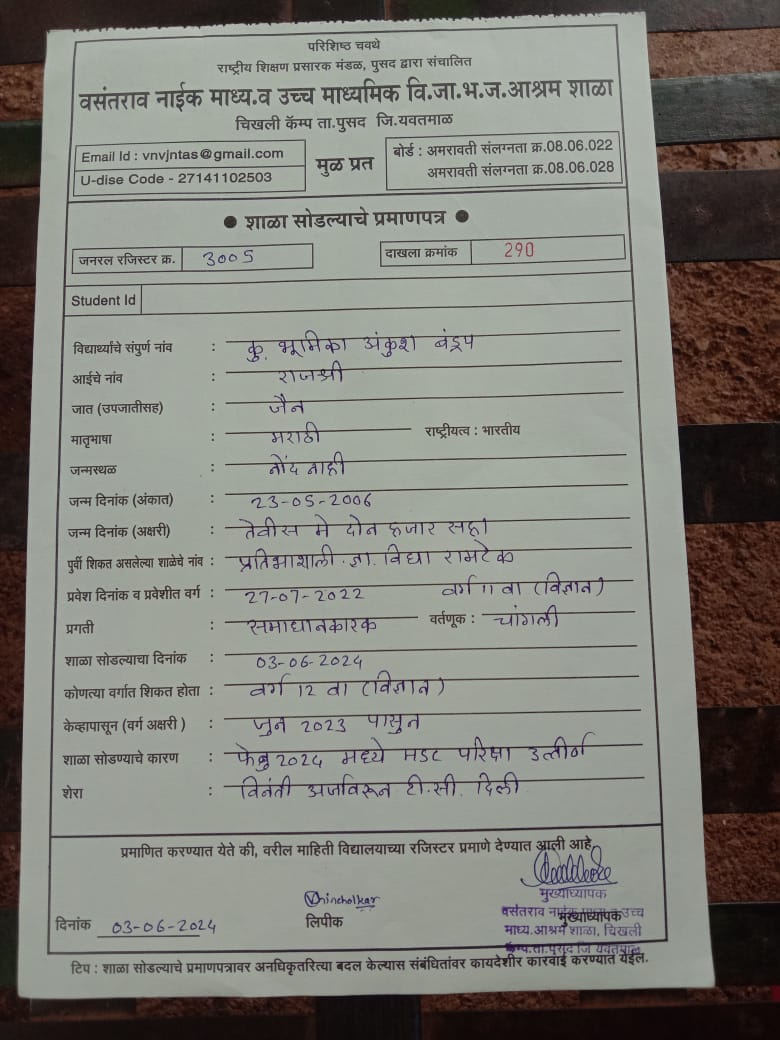 परिशिष्ठ चवथे
राष्ट्रीय शिक्षण प्रसारक मंडळ, पुसद द्वारा संचालित
वसंतराव नाईक माध्य.व उच्च माध्यमिक वि.जा.भ.ज.आश्रम शाळा
चिखली कॅम्प ता.पुसद जि.यवतमाळ
Email Id : vnvjntas@gmail.com
U-dise Code - 27141102503
मुळ प्रत
बोर्ड : अमरावती संलग्नता क्र.08.06.022
अमरावती संलग्नता क्र.08.06.028
● शाळा सोडल्याचे प्रमाणपत्र ●
जनरल रजिस्टर क्र. 3005 दाखला क्रमांक 290
Student Id
विद्यार्थ्याचे संपुर्ण नांव : कु. भूमिका अंकुश
आईचे नांव : राजश्री
जात (उपजातीसह) : जैन
मातृभाषा : मराठी राष्ट्रीयत्व : भारतीय
जन्मस्थळ : नोंद नाही
जन्म दिनांक (अंकात) : 23-05-2006
जन्म दिनांक (अक्षरी) : तेवीस मे दोन हजार सहा
पुर्वी शिकत असलेल्या शाळेचे नांव : प्रतिभाशाली ज्ञा. विद्या रामटेक
प्रवेश दिनांक व प्रवेशीत वर्ग : 27-07-2022 वर्ग 11 वा (विज्ञान)
प्रगती : समाधानकारक वर्तणूक : चांगली
शाळा सोडल्याचा दिनांक : 03-06-2024
कोणत्या वर्गात शिकत होता : वर्ग 12 वा (विज्ञान)
केव्हापासून (वर्ग अक्षरी) : जुन 2023 पासुन
शाळा सोडण्याचे कारण : फेब्रु 2024 मध्ये HSC परिक्षा उत्तीर्ण
शेरा : विनंती अर्जावरून टी.सी. दिली
प्रमाणित करण्यात येते की, वरील माहिती विद्यालयाच्या रजिस्टर प्रमाणे देण्यात आली आहे.
Vhincholkar
मुख्याध्यापक
दिनांक 03-06-2024 लिपीक मुख्याध्यापक
वसंतराव नाईक उच्च
माध्य.आश्रम शाळा, चिखली
कॅम्प.ता.पुसद जि यवतमाळ
टिप : शाळा सोडल्याचे प्रमाणपत्रावर अनधिकृतरित्या बदल केल्यास संबंधितांवर कायदेशीर कारवाई करण्यात येईल.